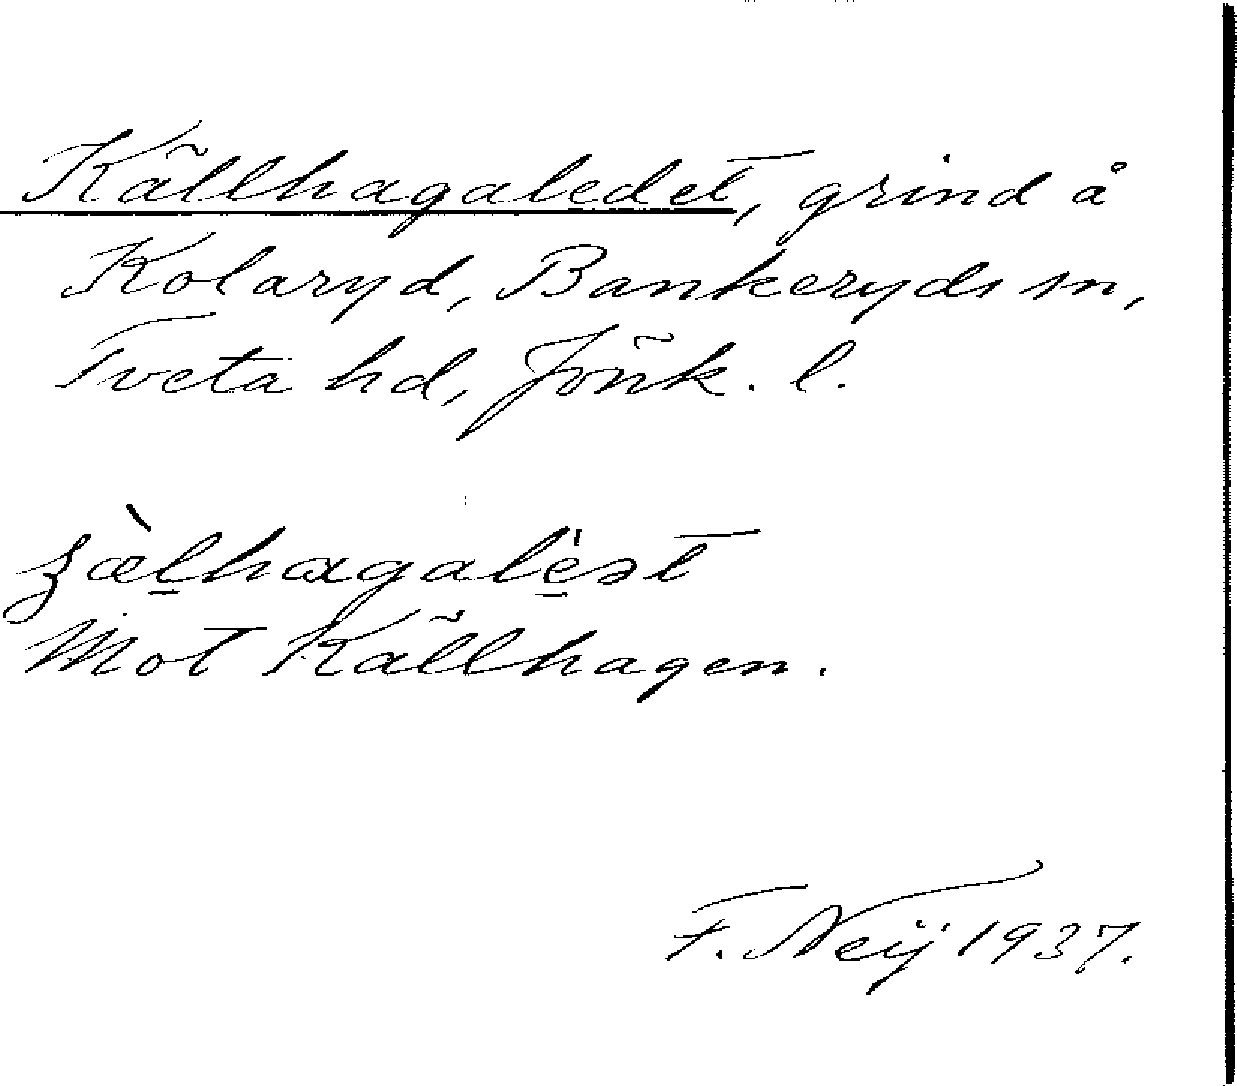 Källhagaledet, grind å
Kolaryd, Bankeryds sn,
Tveta hd, Jönk. l.
Mot Källhagen.
F. Neij 1937.